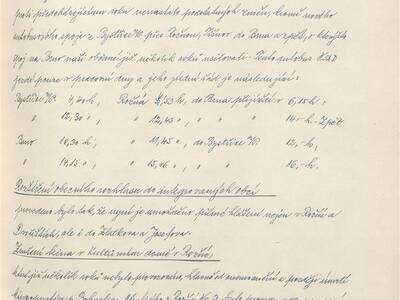 proti předcházejícímu roku nenastalo podstatných změn, kromě nového
autobusového spoje z Bystřice n/P. přes Rožnou, Tišnov do Brna a zpět, o kterýžto
spoj na Brno naši občané již několik roků usilovali. Tento autobus ČSAD
jezdí pouze v pracovní dny a jeho jízdní řád je následující:
Bystřice n/P. 4,40 h, Rožná 4,53 h, do Brna příjezd v 6,15 h,
" 12,30 ", " 12,45 ", " " " 14,- h. - Zpět
Brno 10,30 h, " 11,45 ", do Bystřice n/P. 12,- h,
" 14,15 ", " 15,46 ", " " 16,- h.
Rozšíření obecního rozhlasu do integrovaných obcí
provedeno bylo tak, že nyní je umožněno přímé hlášení nejen v Rožné a
Dvořištích, ale i do Zlatkova a Josefova.
Zrušení kina v Kulturním domě v Rožné,
které již několik roků nebylo provozováno, hlavně od onemocnění a později úmrtí